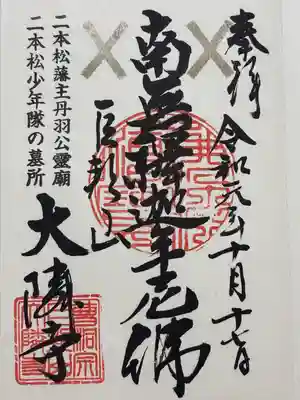 奉拝 令和元年十月十七日
南無釈迦牟尼佛
巨邦山
二本松藩主丹羽公霊廟
二本松少年隊の墓所
大隣寺